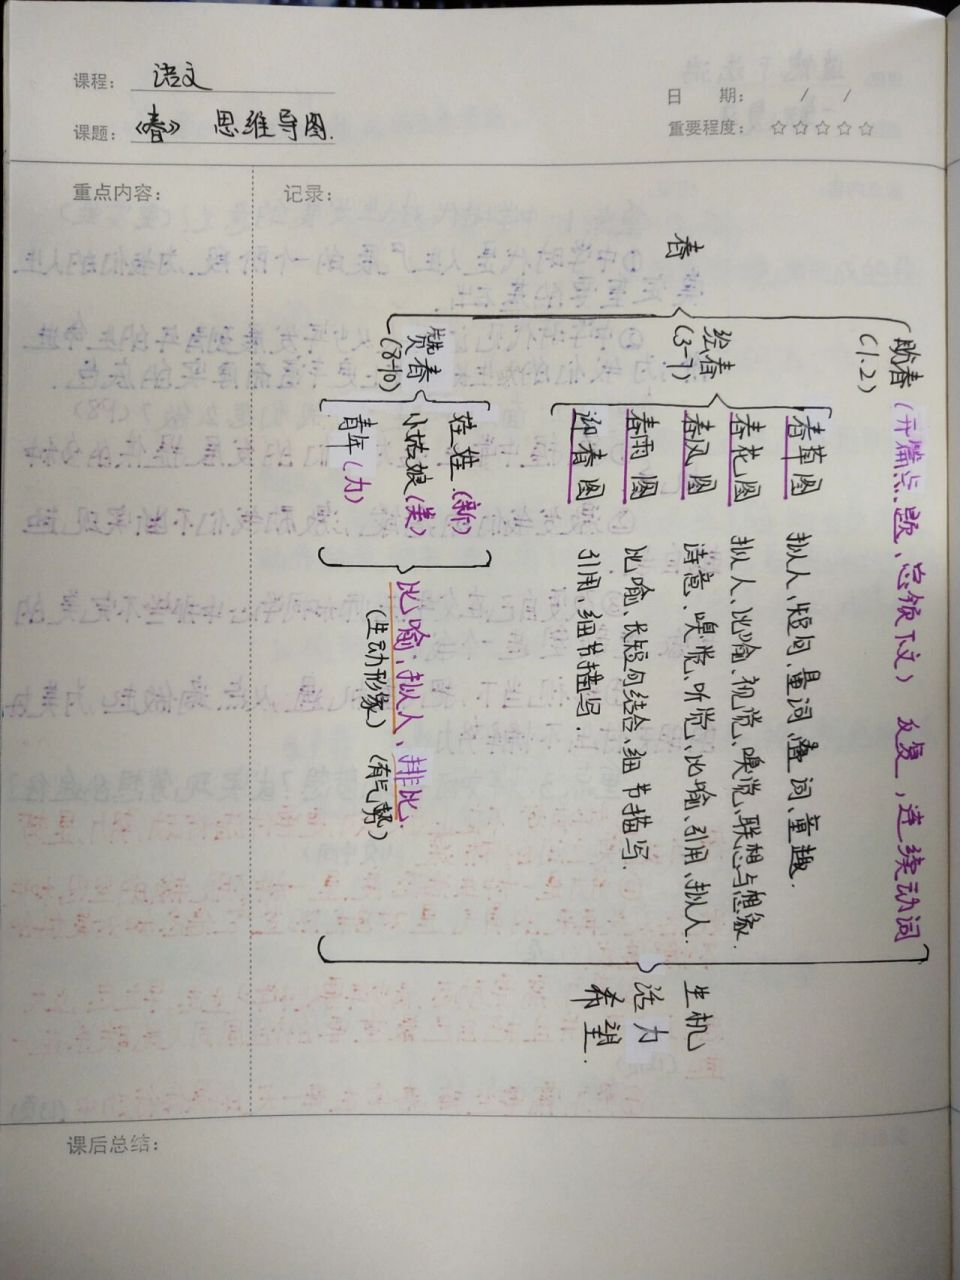 课程: 语文
课题: 《春》 思维导图.
日 期: / /
重要程度: ☆☆☆☆☆
重点内容:
记录:
春
盼春 (开篇点题、总领下文) 反复,连续动词
(1.2)
绘春
(3-7)
春草图 拟人、短句、量词、叠词、童趣.
春花图 拟人、比喻、视觉、嗅觉、联想与想象.
春风图 诗意、嗅觉、听觉、比喻、引用、拟人.
春雨图 比喻、长短句结合、细节描写.
迎春图 引用、细节描写.
赞春
(8-10)
娃娃.(新)
小姑娘(美)
青年(力)
比喻,拟人,排比.
(生动形象) (有气势)
生机
活力
希望.
课后总结: